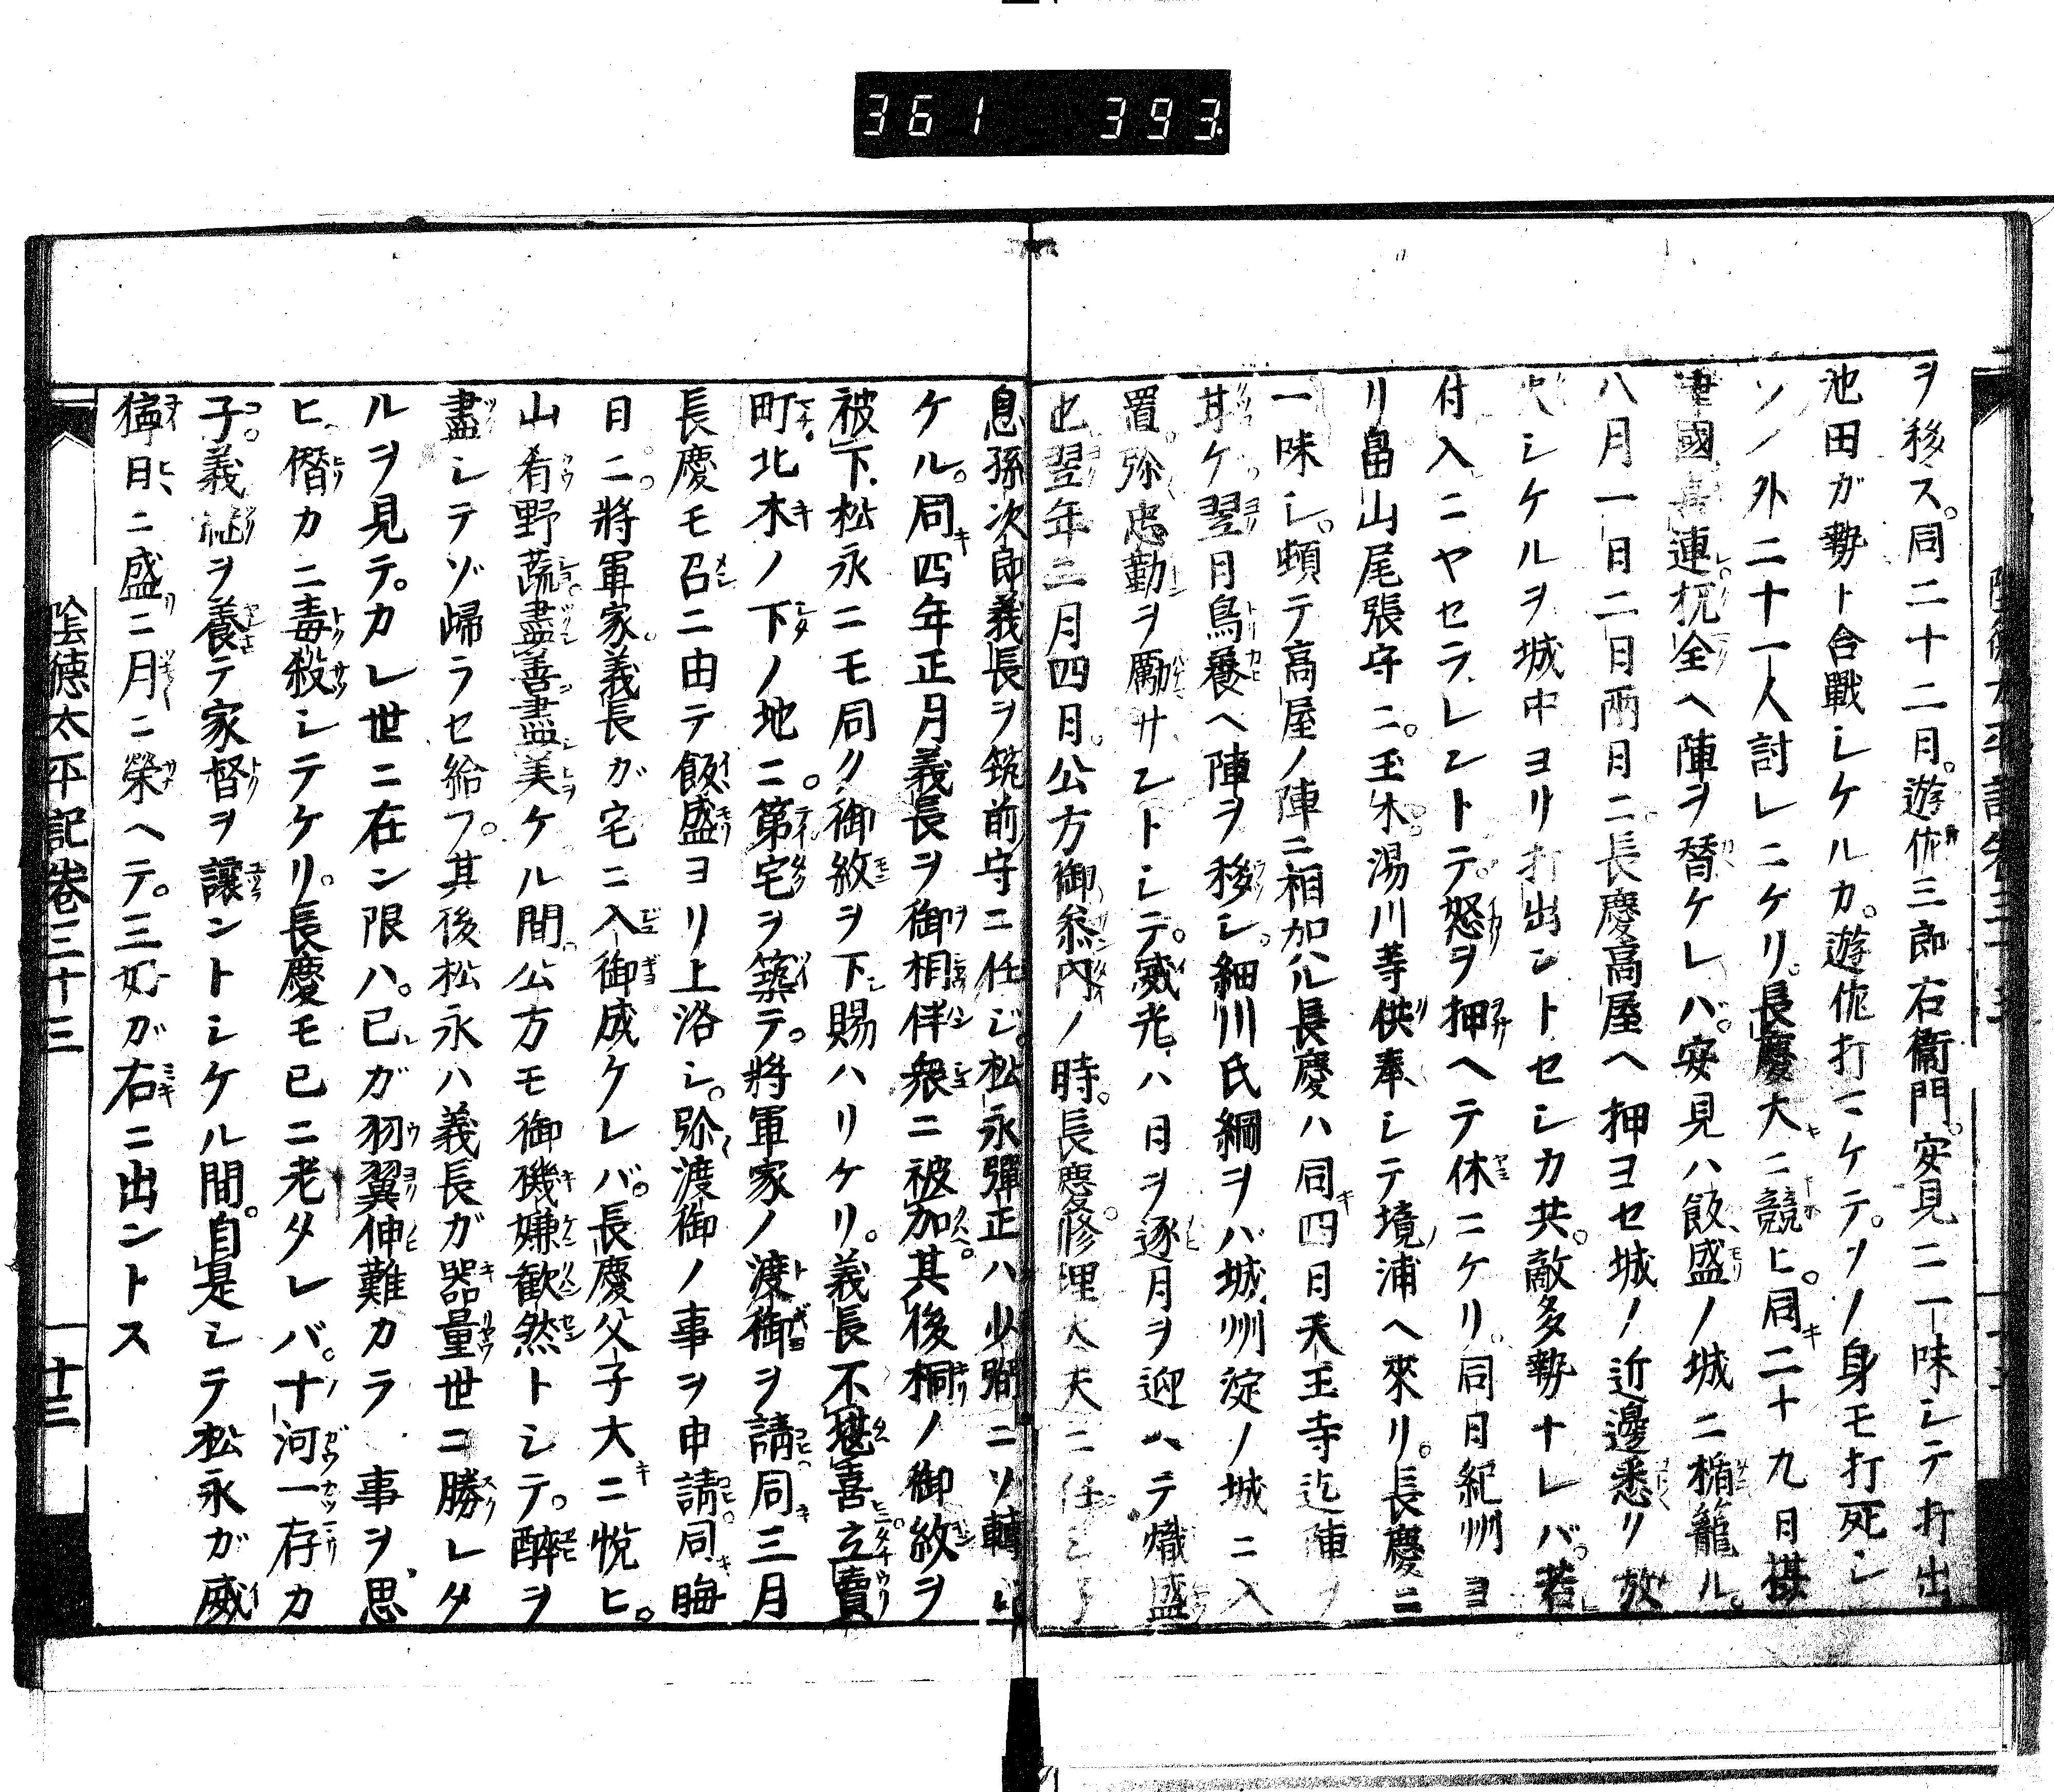 361 393
ヲ移ス。同二十二月。遊佐三郎右衞門。安見ニ一味シテ打出
池田ガ勢ト合戰シケルカ。遊佐打マケテ。ソノ身モ打死シ
ソノ外二十一人討レニケリ。長慶大ニ競ヒ。同二十九日攝
津國喜連杭全ヘ陣ヲ替ケレバ。安見ハ飯盛ノ城ニ楯籠ル。
八月一日二日兩日ニ。長慶高屋ヘ押ヨセ城ノ近邊悉リ放
火シケルヲ城中ヨリ打出ントセシカ共。敵多勢ナレバ。若
付入ニヤセラレントテ。怒ヲ押ヘテ休ニケリ。同日紀州ヨ
リ畠山尾張守ニ。玉木。湯川等供奉シテ境浦ヘ來リ。長慶ニ
一味シ。頓テ高屋ノ陣ニ相加ハル長慶ハ同四日天王寺迄陣ノ
ケ翌日鳥養ヘ陣ヲ移シ。細川氏綱ヲバ城州淀ノ城ニ入
置。弥忠勤ヲ勵サントシテ。威光ハ日ヲ逐月ヲ迎ヘテ熾盛
也翌年二月四日。公方御叅內ノ時。長慶。修理大夫ニ任シ
息孫次郎義長ヲ筑前守ニ任ジ。松永彈正ハ少弼ニソ轉
ケル。同四年正月義長ヲ御相伴衆ニ被加。其後桐ノ御紋ヲ
被下。松永ニモ同ク御紋ヲ下賜ハリケリ。義長不堪喜立賣
町北木ノ下ノ地ニ。第宅ヲ築テ。將軍家ノ渡御ヲ請同三月
長慶モ召ニ由テ飯盛ヨリ上洛シ。弥渡御ノ事ヲ申請。同晦
日ニ。將軍家。義長ガ宅ニ入御成ケレバ。長慶父子大ニ悅ヒ。
山肴野蔬盡善盡美ケル間。公方モ御磯嫌歡然トシテ。醉ヲ
盡シテゾ歸ラセ給フ。其後松永ハ義長ガ器量世ニ勝レタ
ルヲ見テ。カレ世ニ在ン限ハ。已ガ羽翼伸難カラ事ヲ思
ヒ。僭カニ毒殺シテケリ。長慶モ已ニ老タレバ。十河一存カ
子。義継ヲ養テ家督ヲ讓ントシケル間。自是シテ松永ガ威
日ニ盛ニ月ニ榮ヘテ。三好ガ右ニ出ントス
陰德太平記卷三十三
十三